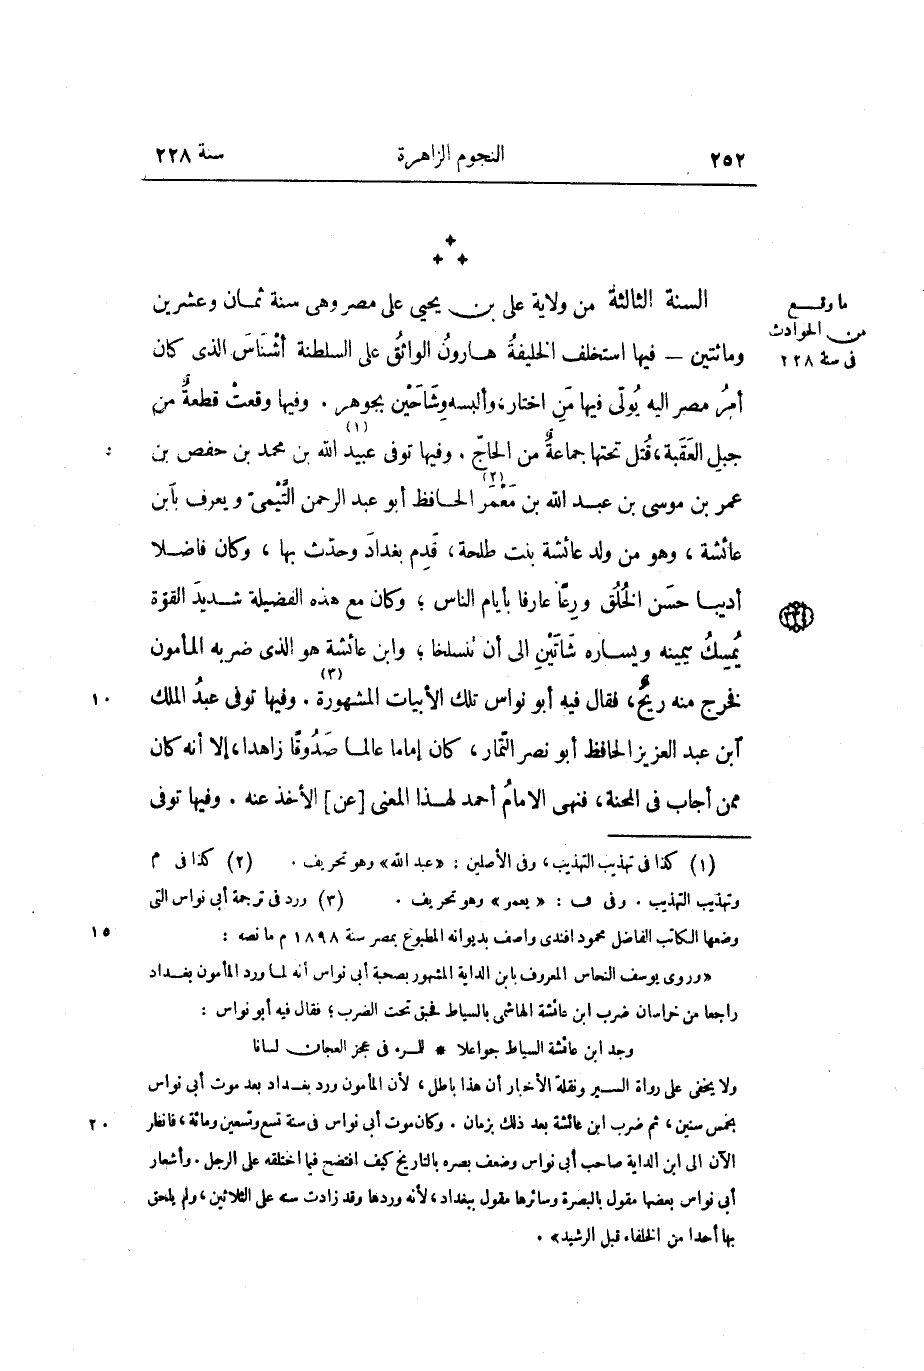 ٢٥٢ النجوم الزاهرة سنة ٢٢٨
السنة الثالثة من ولاية على بن يحيى على مصر وهى سنة ثمان وعشرين
ومائتين — فيها استخلف الخليفةُ هارونُ الواثقُ على السلطنة أشْنَاسَ الذى كان
أمرُ مصر اليه يُولّى فيها مَن اختار، وألبسه وِشَاحَيْن بجوهر . وفيها وقعتْ قطعةٌ من
جبل العَقَبة، قُتل تحتها جماعةٌ من الحاجّ . وفيها توفى عبيد (١) الله بن محمد بن حفص بن
عمر بن موسى بن عبد الله بن مَعْمَر (٢) الحافظ أبو عبد الرحمن التَّيْمىّ ويعرف بآبن
عائشة ، وهو من ولد عائشة بنت طلحة، قَدِم بغدادَ وحدّث بها ، وكان فاضلا
أديبا حسَن الخُلُق ورِعًا عارفا بأيام الناس ؛ وكان مع هذه الفضيلة شديدَ القوّة
يُمسِكُ بيمينه ويساره شَاتَيْنِ الى أن تُنسلخا ؛ وابن عائشة هو الذى ضربه المأمون
فخرج منه ريحٌ، فقال فيه أبو نواس تلك الأبيات المشهورة (٣) . وفيها توفى عبدُ الملك
١٠
آبن عبد العزيز الحافظ أبو نصر التّمّار ، كان إماما عالما صَدُوقًا زاهدا، إلا أنه كان
ممن أجاب فى المحنة، فنهى الامامُ أحمد لهذا المعنى [عن] الأخذ عنه . وفيها توفى
ما وقع
من الحوادث
فى سنة ٢٢٨
(١) كذا فى تهذيب التهذيب، وفى الأصلين : «عبد الله» وهو تحريف . (٢) كذا فى م
وتهذيب التهذيب . وفى ف : « يعمر » وهو تحريف . (٣) ورد فى ترجمة أبى نواس التى
وضعها الكاتب الفاضل محمود افندى واصف بديوانه المطبوع بمصر سنة ١٨٩٨ م ما نصه :
١٥
«وروى يوسف النحاس المعروف بابن الداية المشهور بصحبة أبى نواس أنه لما ورد المأمون بغداد
راجعا من خراسان ضرب ابن عائشة الهاشمى بالسياط فحبق تحت الضرب؛ فقال فيه أبو نواس :
وجد ابن عائشة السياط جواعلا * للمرء فى عجز العجان لسانا
ولا يخفى على رواة السير ونقلة الأخبار أن هذا باطل، لأن المأمون ورد بغداد بعد موت أبى نواس
بخمس سنين، ثم ضرب ابن عائشة بعد ذلك بزمان . وكان موت أبى نواس فى سنة تسع وتسعين ومائة، فانظر
٢٠
الآن الى ابن الداية صاحب أبى نواس وضعف بصره بالتاريخ كيف افتضح فيما اختلقه على الرجل . وأشعار
أبى نواس بعضها مقول بالبصرة وسائرها مقول ببغداد، لأنه وردها وقد زادت سنه على الثلاثين، ولم يلحق
بها أحدا من الخلفاء قبل الرشيد» .